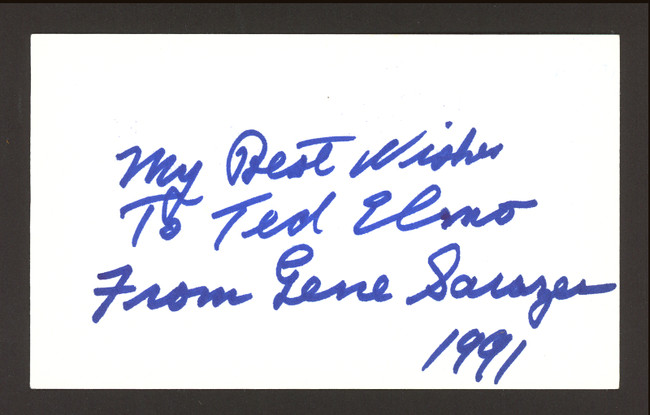 My Best Wishes
To Ted Elmo
From Gene Sarazen
1991